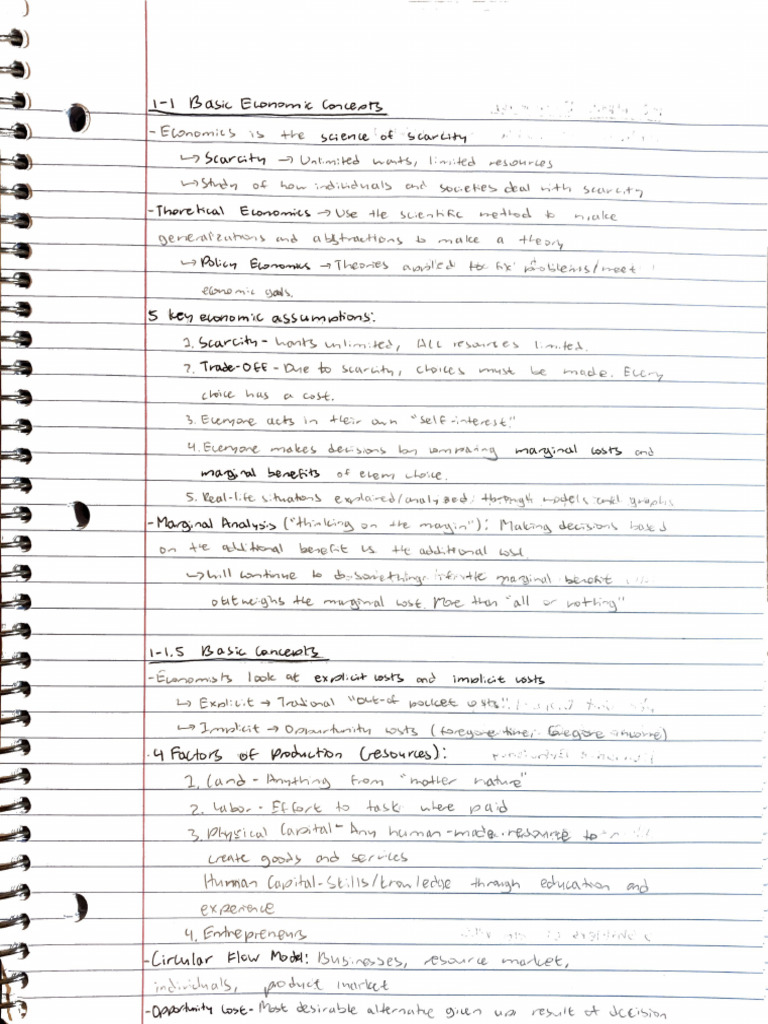 1-1 Basic Economic Concepts
- Economics is the science of scarcity
↳ Scarcity → Unlimited wants, limited resources
↳ Study of how individuals and societies deal with scarcity
- Theoretical Economics → Use the scientific method to make
generalizations and abstractions to make a theory
↳ Policy Economics → Theories applied to fix problems/meet
economic goals.
5 key economic assumptions:
1. Scarcity - wants unlimited, ALL resources limited.
2. Trade-Off - Due to scarcity, choices must be made. Every
choice has a cost.
3. Everyone acts in their own "self-interest."
4. Everyone makes decisions by comparing marginal costs and
marginal benefits of every choice.
5. Real-life situations explained/analyzed through models and graphs
- Marginal Analysis ("thinking on the margin"): Making decisions based
on the additional benefit vs the additional cost.
↳ will continue to do something if the marginal benefit
outweighs the marginal cost. More than "all or nothing"
1-1.5 Basic Concepts
- Economists look at explicit costs and implicit costs
↳ Explicit → Traditional "out-of pocket costs"
↳ Implicit → Opportunity costs (foregone time, foregone income)
- 4 Factors of production (resources):
1. Land - Anything from "mother nature"
2. Labor - Effort to task where paid
3. Physical Capital - Any human-made resource to
create goods and services
Human Capital - Skills/knowledge through education and
experience
4. Entrepreneurs
- Circular Flow Model: Businesses, resource market,
individuals, product market
- Opportunity Cost - Most desirable alternative given up result of decision